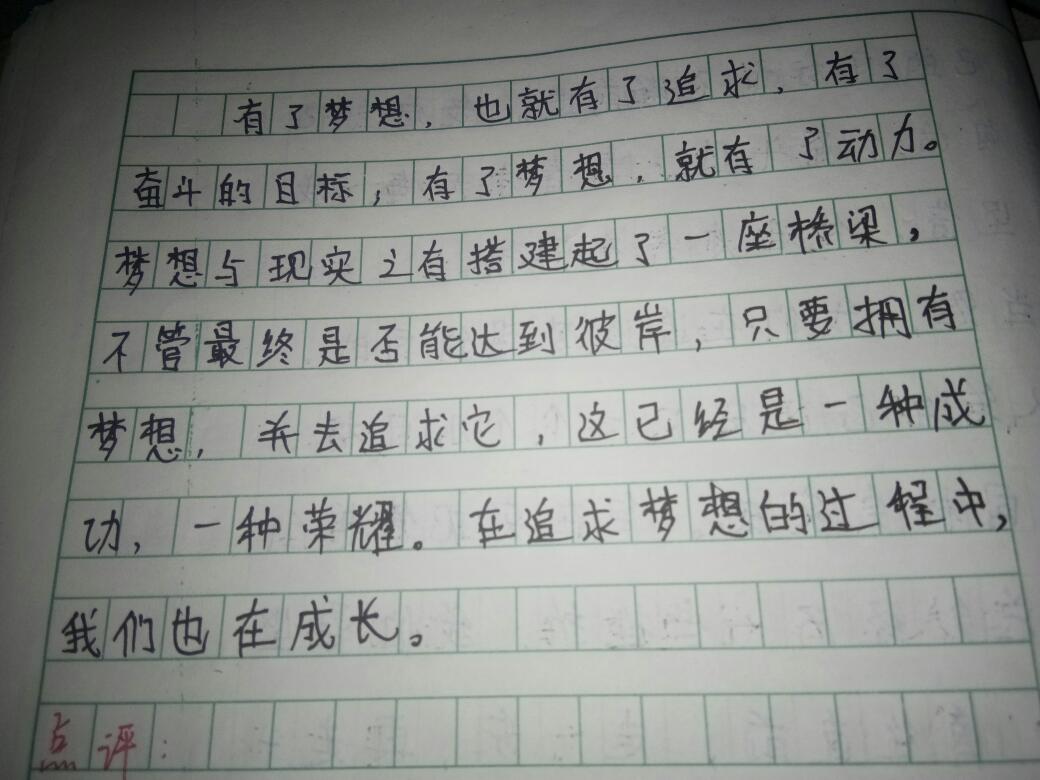 有了梦想，也就有了追求，有了
奋斗的目标，有了梦想，就有了动力。
梦想与现实之有搭建起了一座桥梁，
不管最终是否能达到彼岸，只要拥有
梦想，并去追求它，这已经是一种成
功，一种荣耀。在追求梦想的过程中，
我们也在成长。
点评：